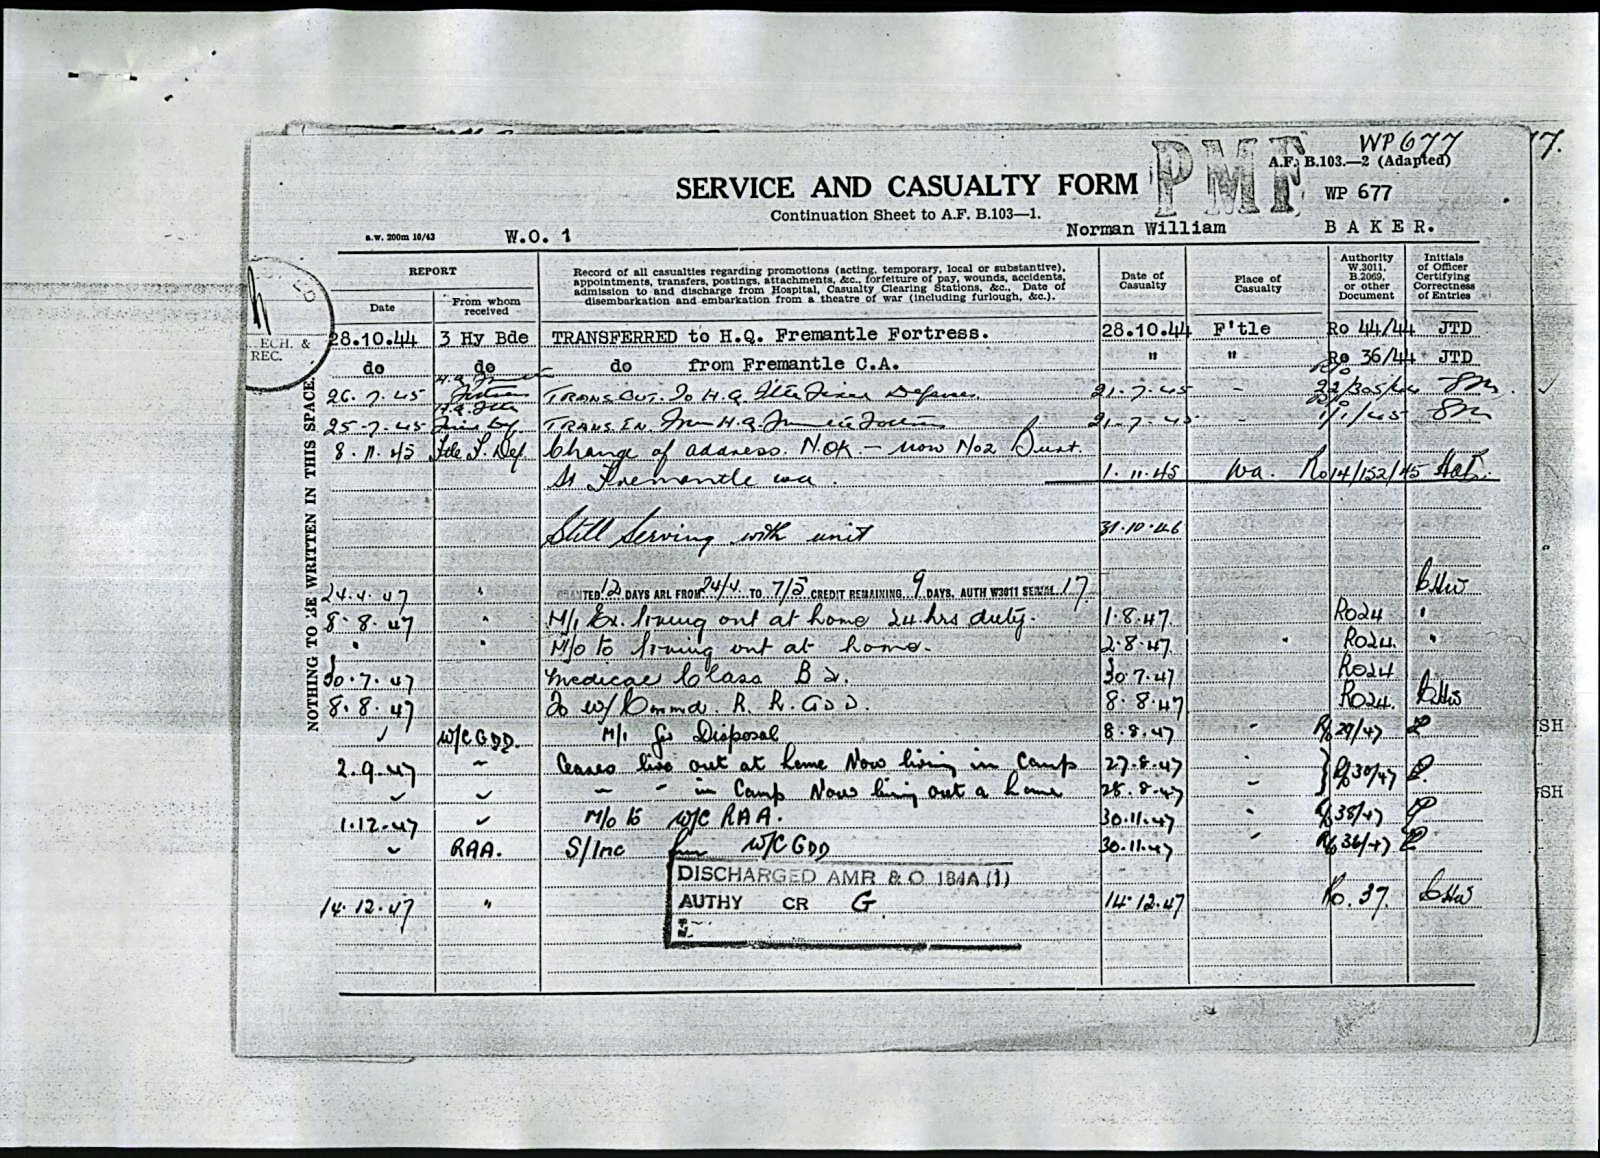 WP677
7.
PMF
A.F. B.103.—2 (Adapted)
SERVICE AND CASUALTY FORM
WP 677
Continuation Sheet to A.F. B.103—1.
s.w. 200m 10/43
W.O. 1
Norman William
BAKER.
REPORT
Date
From whom received
Record of all casualties regarding promotions (acting, temporary, local or substantive),
appointments, transfers, postings, attachments, &c., forfeiture of pay, wounds, accidents,
admission to and discharge from Hospital, Casualty Clearing Stations, &c., Date of
disembarkation and embarkation from a theatre of war (including furlough, &c.).
Date of Casualty
Place of Casualty
Authority W.3011, B.2069, or other Document
Initials of Officer Certifying Correctness of Entries
ECH. &
REC.
NOTHING TO BE WRITTEN IN THIS SPACE.
28.10.44 3 Hy Bde TRANSFERRED to H.Q. Fremantle Fortress. 28.10.44 F'tle Ro 44/44 JTD
do do do from Fremantle C.A. " " Ro 36/44 JTD
26.7.45 TRANS OUT. To H.Q. 21.7.45
25.7.45 TRANS. EN. from H.Q. 21.7.45 1/1/45
8.11.45 Ftle F. Def. Change of address. N.OK. – now No2
St Fremantle wa. 1.11.45 Wa. Ro14/152/45
Still Serving with unit 31.10.46
24.4.47 " GRANTED 12 DAYS ARL FROM 24/4 TO 7/5 CREDIT REMAINING 9 DAYS. AUTH W3011 SERIAL 17 CHW
8.8.47 " M/1 Ex. living out at home 24 hrs duty. 1.8.47. RO24 "
" " M/o to living out at home. 2.8.47. " RO24. "
30.7.47 Medical Class B2. 30.7.47 RO24
8.8.47 To W/Commd. R.R.GDD. 8.8.47 RO24. CHW
✓ W/C GDD. M/1 for Disposal 8.8.47 " Ro 29/47
2.9.47 " Ceases live out at home Now living in Camp 27.8.47 " } Ro 30/47
✓ ✓ " " in Camp Now living out a home 28.8.47 "
1.12.47 ✓ M/o to W/C RAA. 30.11.47 " Ro 38/47
✓ RAA. S/Inc from W/C GDD 30.11.47 " Ro 36/47
DISCHARGED AMR & O 184A (1)
14.12.47 " AUTHY CR G 14.12.47 Ro. 37. CHW
SH
SH